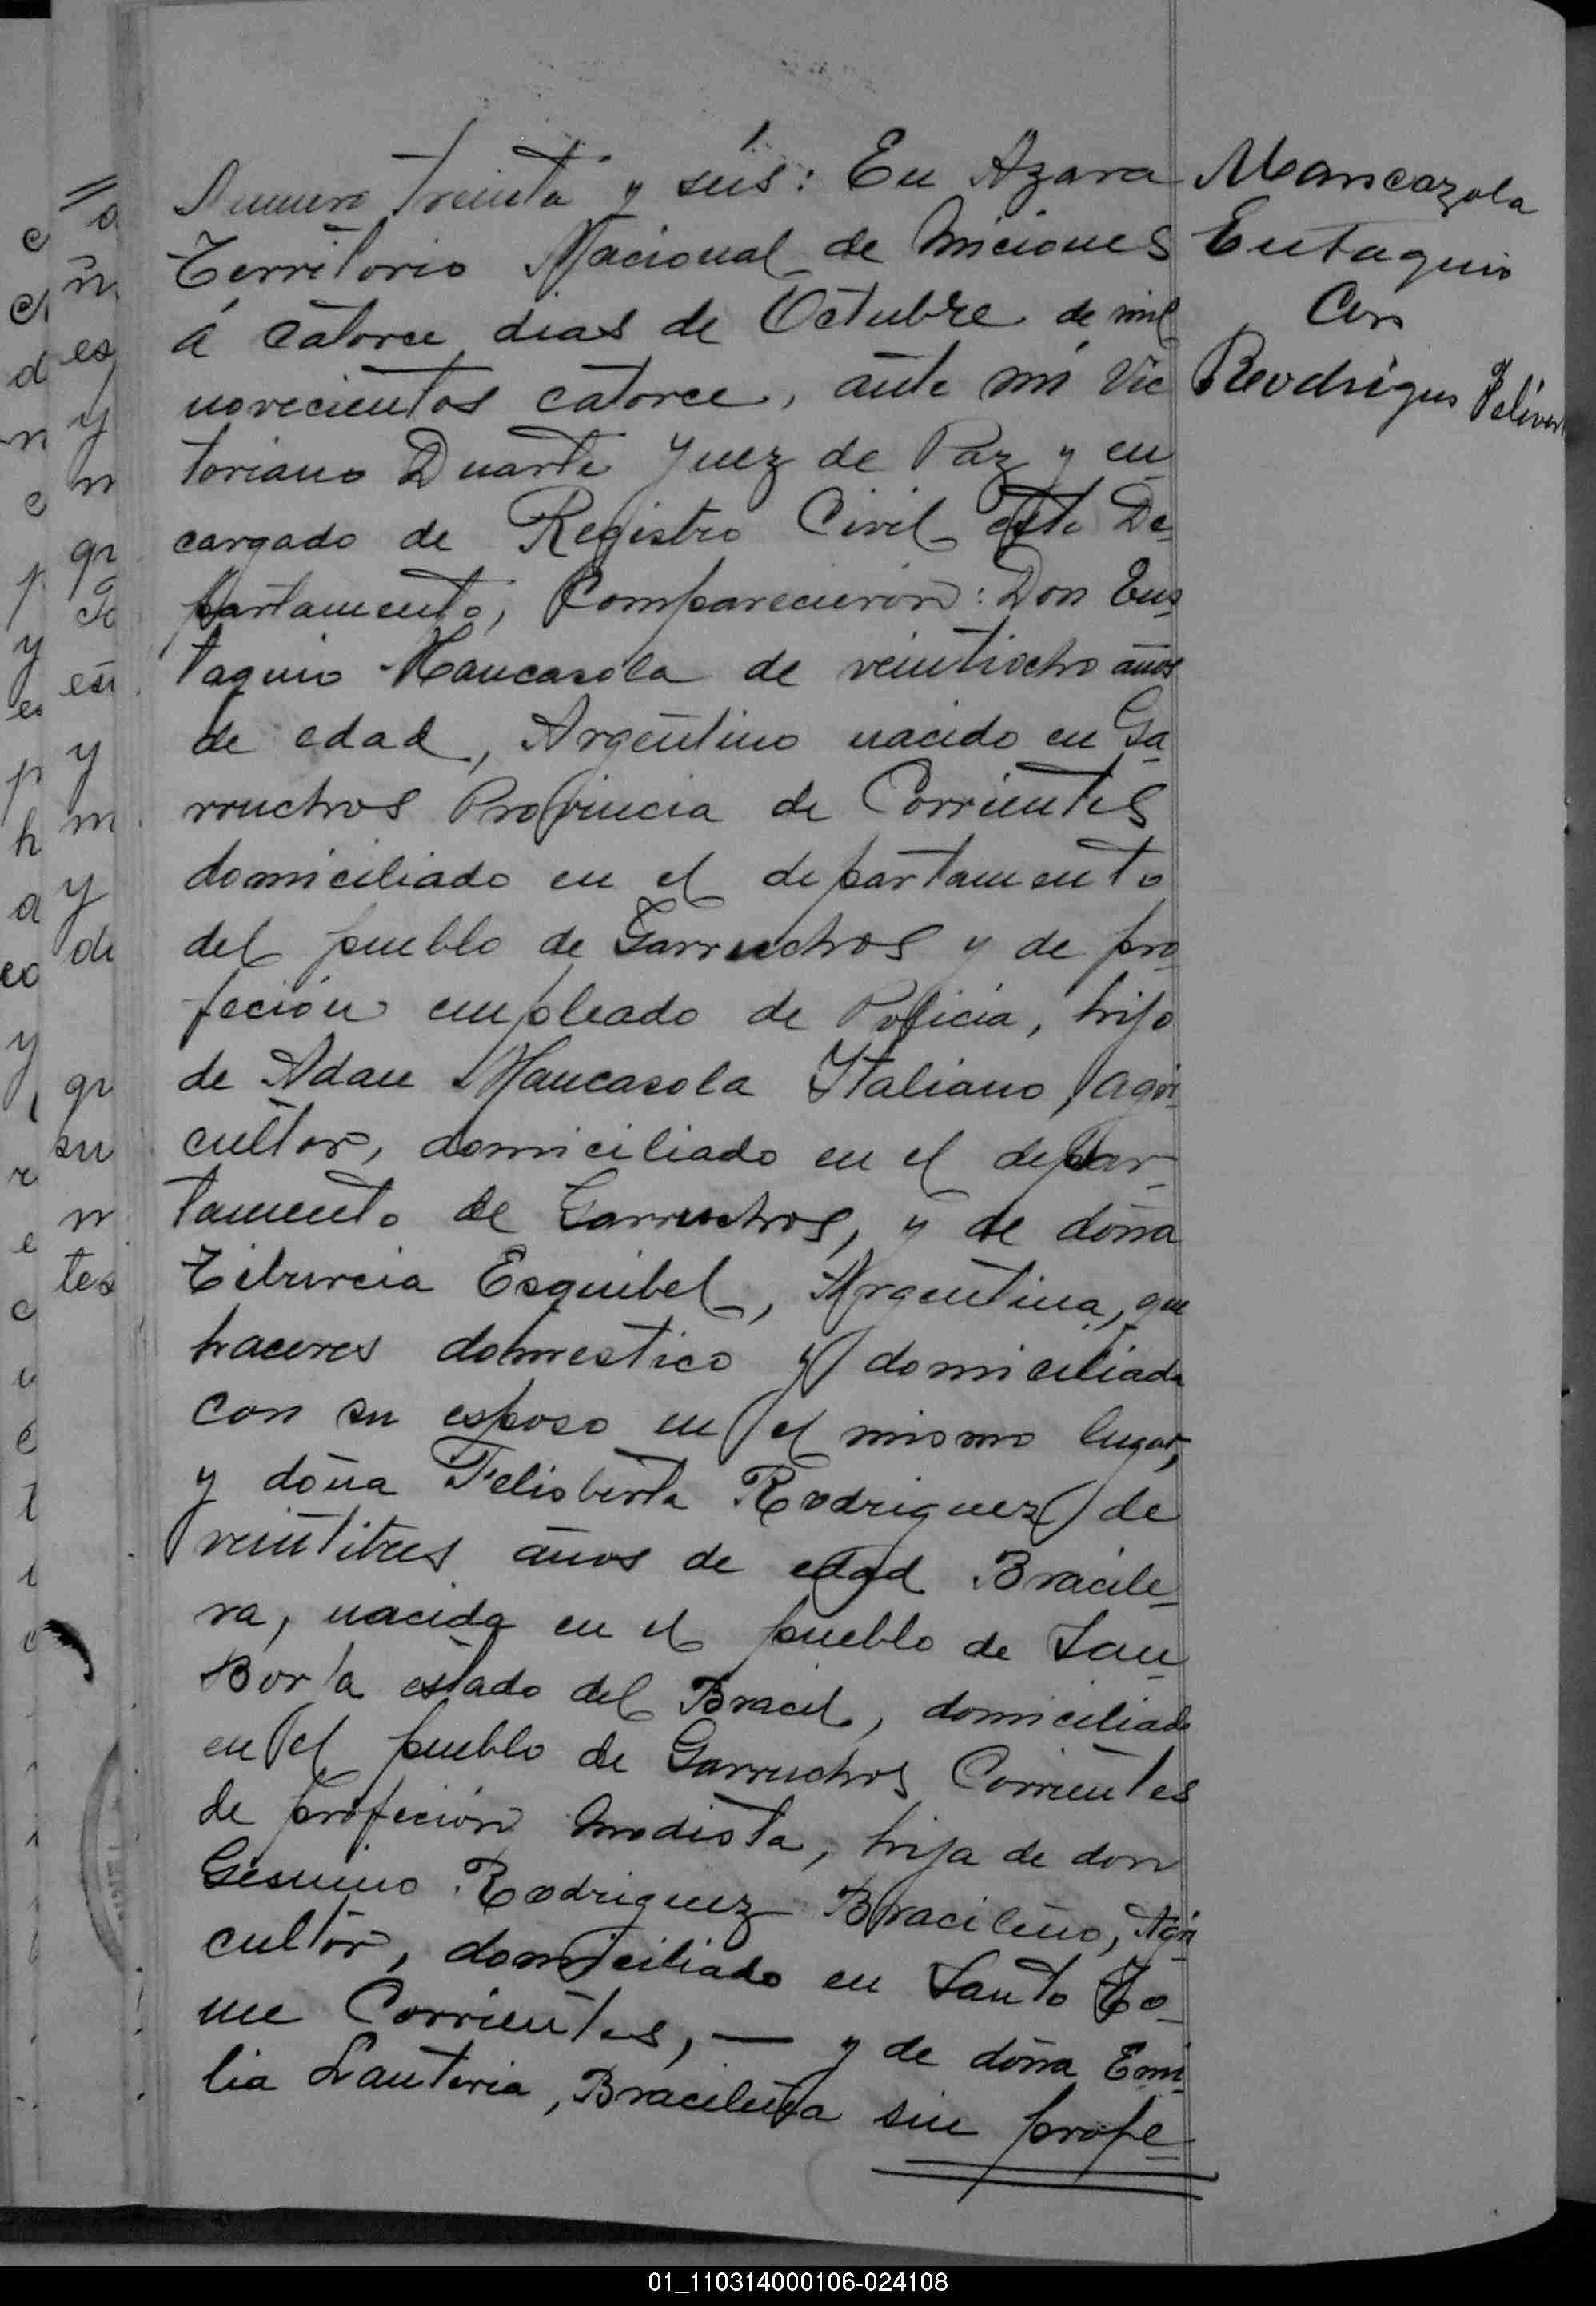 Numero treinta y seis: En Azara
Territorio Nacional de Miciones
á catorce dias de Octubre de mil
novecientos catorce, ante mi Vic
toriano Duarte Juez de Paz y en
cargado de Registro Civil este De
partamento, Comparecieron: Don Eus
taquio Mancasola de veintiocho años
de edad, Argentino nacido en Ga
rruchos Provincia de Corrientes
domiciliado en el departamento
del pueblo de Garruchos y de pro
feción empleado de Policia, hijo
de Adan Mancasola Italiano, agri
cultor, domiciliado en el depar
tamento de Garruchos, y de doña
Tiburcia Esquibel, Argentina, que
haceres domestico y domiciliada
con su esposo en el mismo lugar,
y doña Felisberta Rodriguez de
veintitres años de edad Bracile
ra, nacida en el pueblo de San
Borja estado del Bracil, domiciliada
en el pueblo de Garruchos Corrientes
de profeción modista, hija de don
Rodriguez Bracileño, Agri
cultor, domiciliado en Santo To
me Corrientes, — y de doña Emi
lia Lauteria, Bracileña sin profe
Mancazola
Eutaquio
Con
Reodrigus
01_110314000106-024108